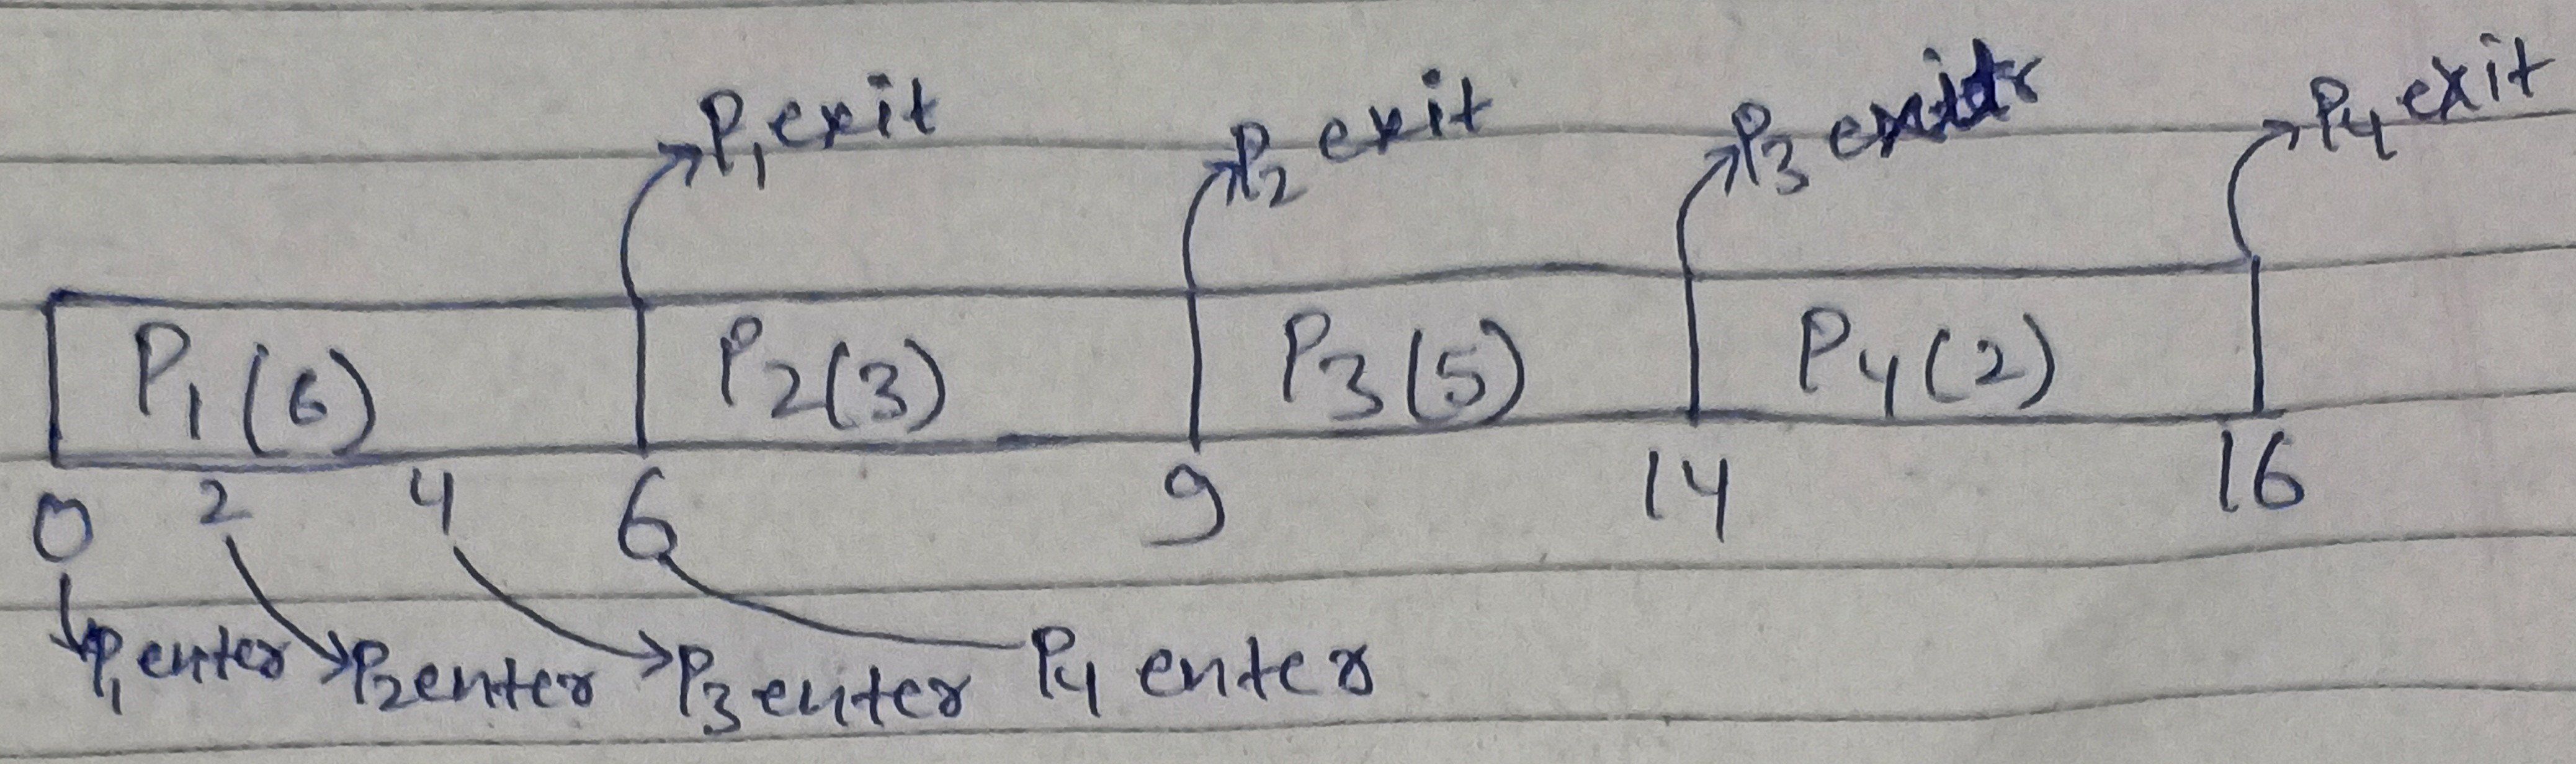 P1 exit P2 exit P3 P4 exit
P1(6) P2(3) P3(5) P4(2)
0 2 4 6 9 14 16
P1 enter P2 enter P3 enter P4 enter